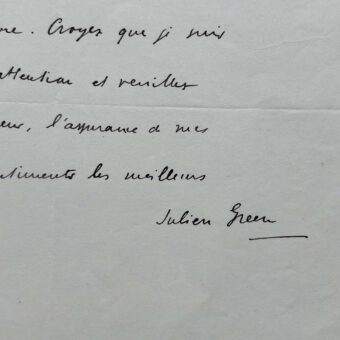 me. Croyez que je suis
attention et veuillez
eur, l'assurance de mes
timents les meilleurs
Julien Green